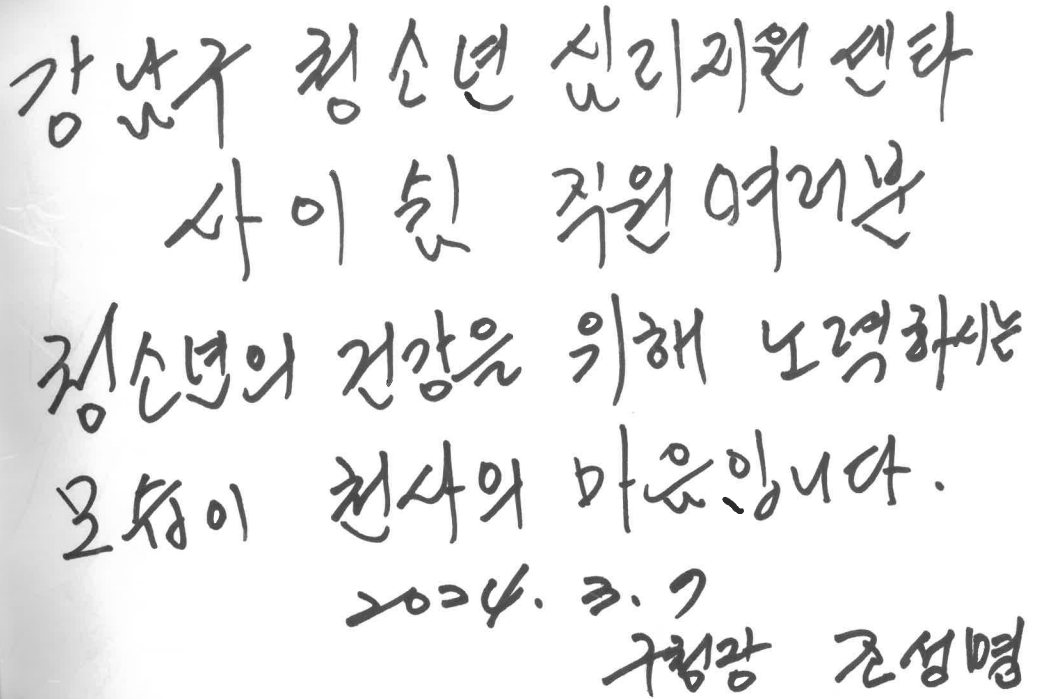 강남구 청소년 심리지원 센타
사이쉼 직원 여러분
청소년의 건강을 위해 노력하시는
모습이 천사의 마음입니다.
2024. 3. 7
구청장 조성명